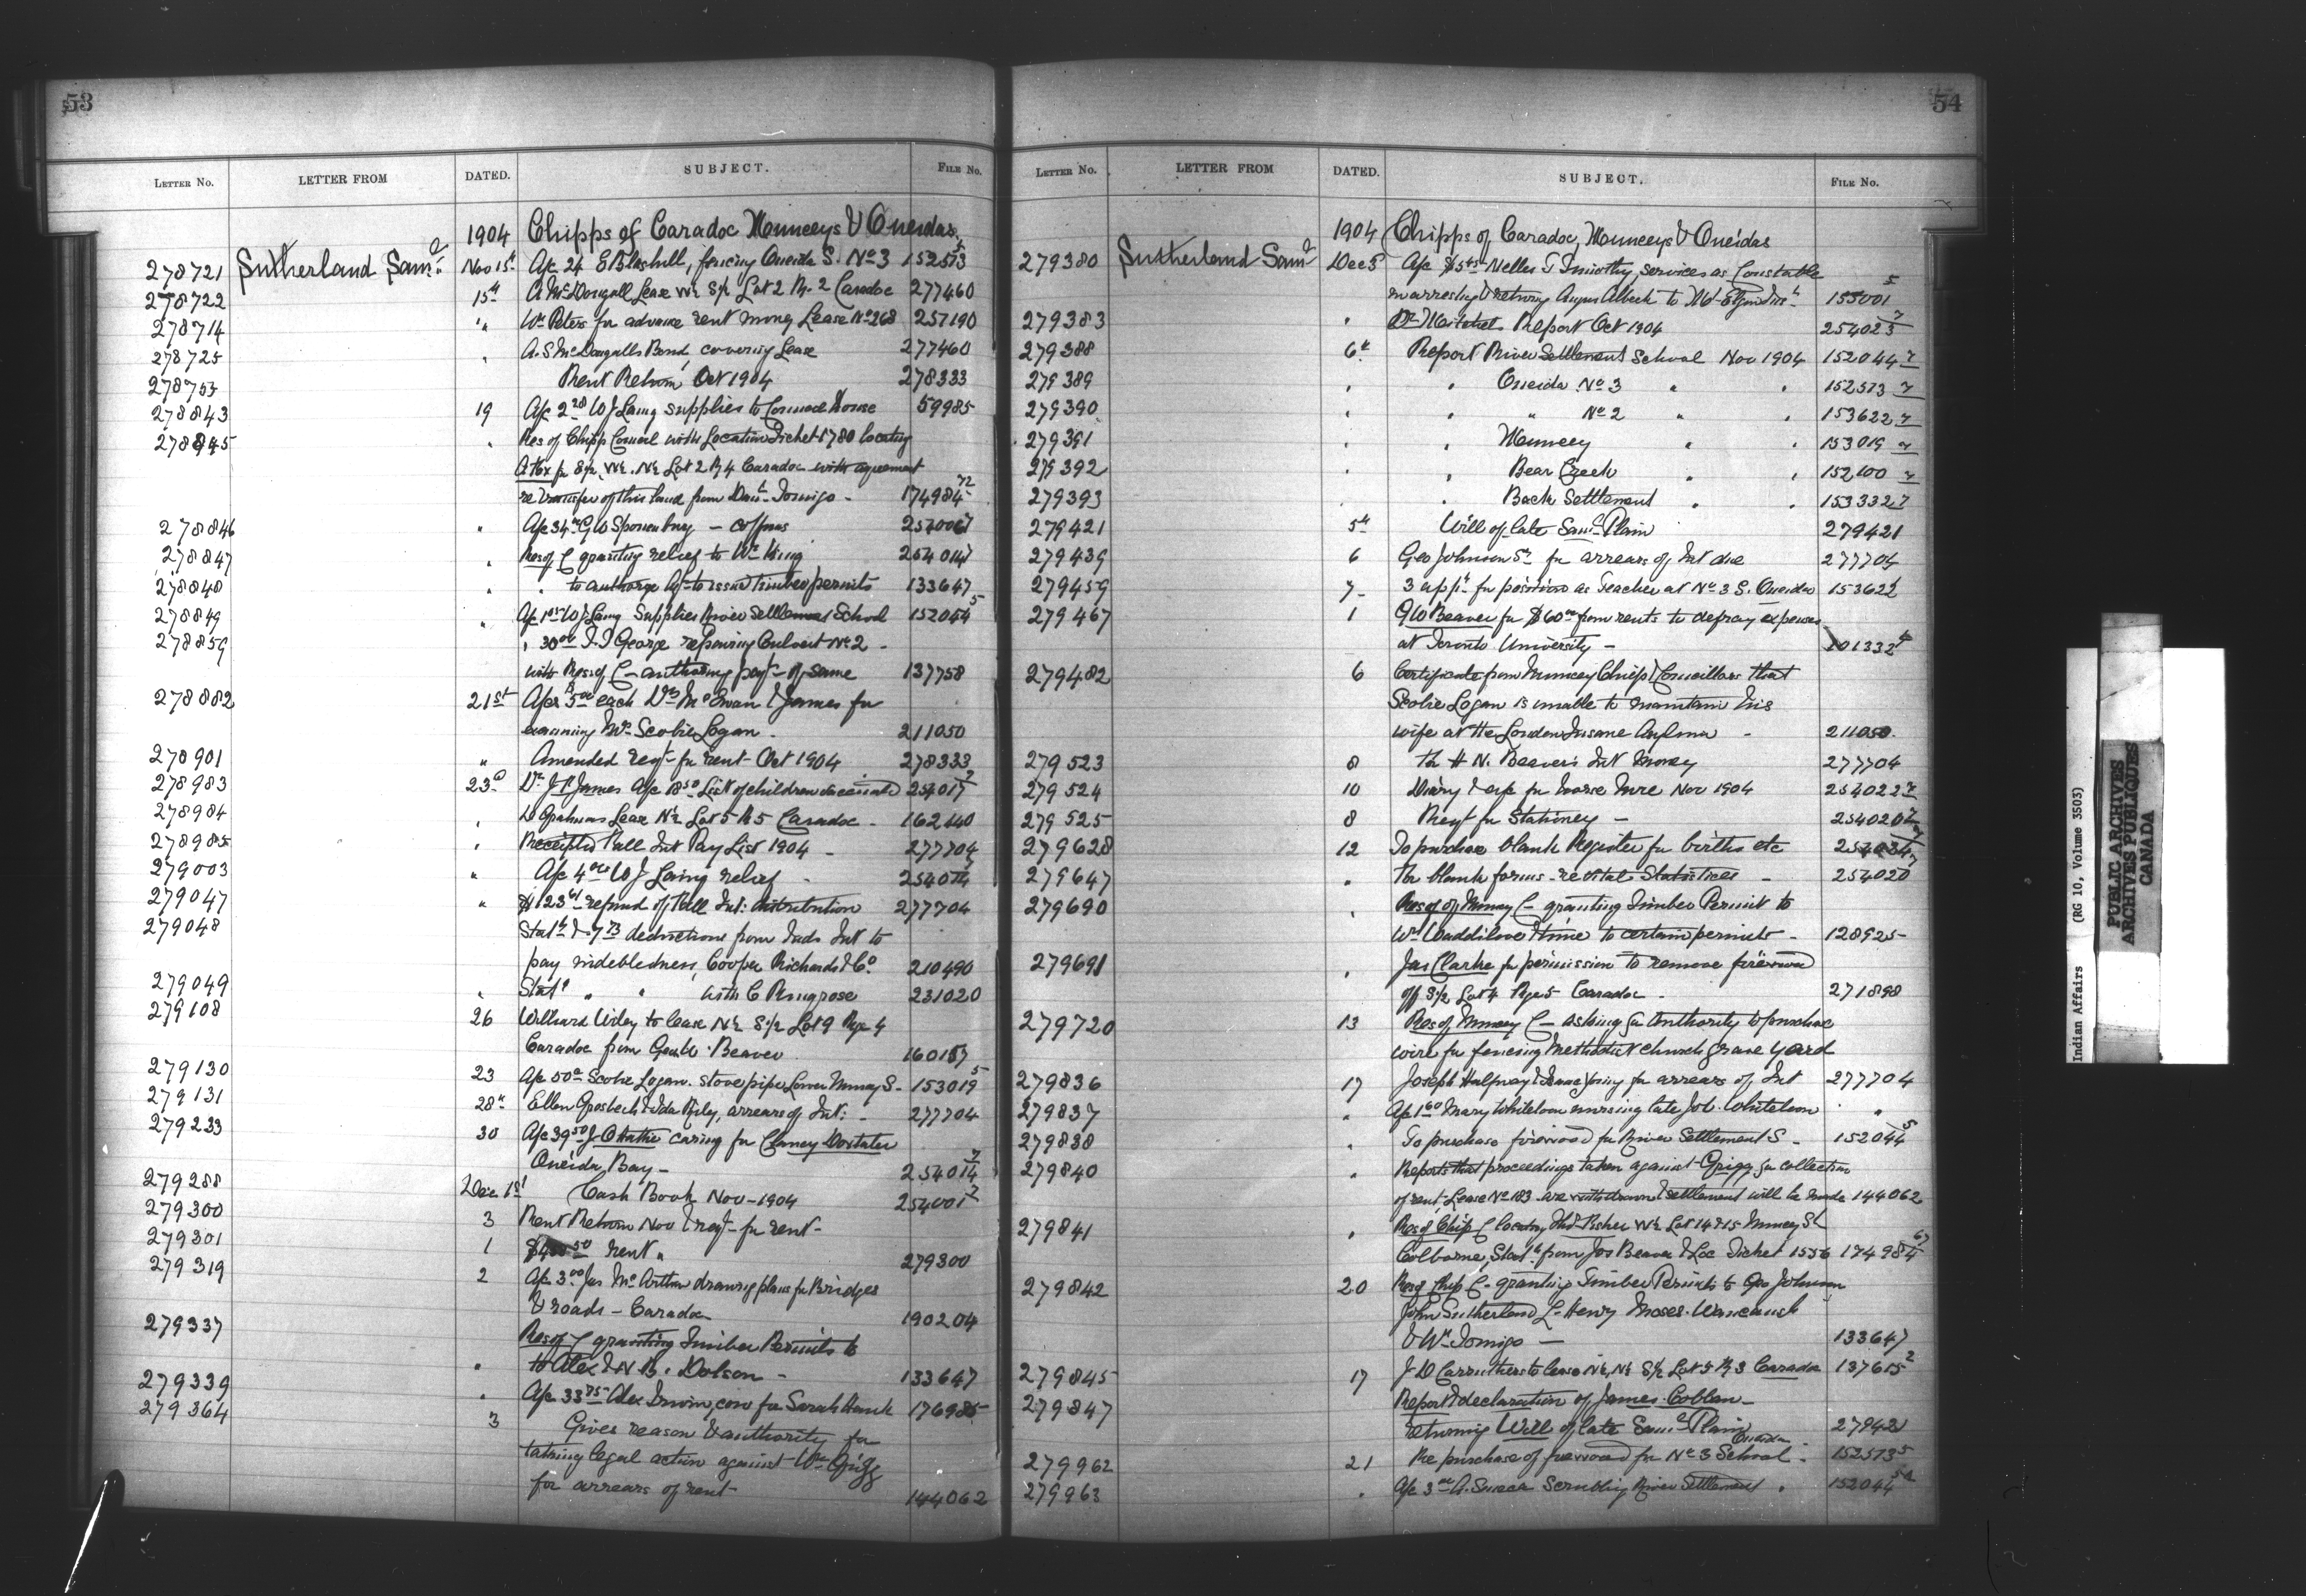 53
LETTER NO. LETTER FROM DATED. SUBJECT. FILE NO.
1904 Chipps of Caradoc Munceys & Oneidas
278721 Sutherland Saml Nov 15th A/c 24 fencing Oneida S. No 3 152573
278722 15th A McDougall Lease W½ S½ Lot 2 R. 2 Caradoc 277460
278714 " Wm Peters for advance rent money Lease No 268 257190
278725 " A. S McDougalls Bond, covering Lease 277460
278753 Rent Return Oct 1904 278333
278843 19 A/c 2.28 W J Laing supplies to Council House 59985
278845 " Res of Chipp Council with Location Ticket 1780 locating
W½ N½ Lot 2 R 4 Caradoc with agreement
re transfer of this land from Danl Tomigo - 174984-72
278846 " A/c 34 G W - coffins 254006
278847 " Res of C granting relief to Wm King 254014
278848 " " to authorize Agt to issue timber permits 133647
278849 " A/c W J Laing Supplies River Settlement School 152044-5
278859 " 30.00 George repairing Culvert No 2 -
with Res of C - authorizing payt - of same 137758
278882 21st A/cs 5.00 each Drs McEwan & James for
examining Mrs Scobie Logan - 211050
278901 " Amended reqt for rent - Oct 1904 278333
278983 23d Dr J P James A/c 18.50 List of children vaccinated 254017-2
278984 " Grahams Lease N½ Lot 5 R 5 Caradoc - 162440
278985 " Receipted Fall Int Pay List 1904 - 277704
279003 " A/c 4.00 W J Laing relief - 254014
279047 " $123 refund of Fall Int: distribution 277704
279048 Statt & 7.73 deductions from Inds Int to
pay indebtedness, Cooper Richards & Co. 210490
279049 " Statt " " with C Pengrose 231020
279108 26 Willard Wiley to lease N½ S½ Lot 9 Rge 4
Caradoc from Beaver 160157
279130 23 A/c 50c Scobie Logan. stovepipe Lower Muncey S - 153019-5
279131 28th Ellen Grosbeck & Ida Riley, arrears of Int: - 277704
279233 30 A/c 39.50 J caring for Doxtater
Oneida Boy - 254014-7
279288 Dec 1st Cash Book Nov - 1904 254001-7
279300 3 Rent Return Nov & reqt for rent -
279301 1 rent " 279300
279319 2 A/c 3.00 Jas McArthur drawing plans for Bridges
& roads - Caradoc 190204
279337 Res of C granting Timber Permits to
" to Alex & N. B. Dolson - 133647
279339 " A/c 33.75 Alex Irwin, cow for Sarah Hawk 176985
279364 3 Gives reason & authority for
taking legal action against Wm Grigg
for arrears of rent - 144062
54
LETTER NO. LETTER FROM DATED. SUBJECT. FILE NO.
1904 Chipps of Caradoc, Munceys & Oneidas
279380 Sutherland Saml Dec 5 A/c Nelles Timothy, services as Constable
in arresting & returning Albeck to 155001-5
279383 " Dr Mitchell Report Oct 1904 254023-7
279388 6th Report River Settlement School Nov 1904 152044-7
279389 " " Oneida No 3 " " 152573-7
279390 " " " No 2 " " 153622-7
279391 " " Muncey " " 153019-7
279392 " " Bear Creek " " 152100-7
279393 " " Back Settlement " " 153332-7
279421 5th Will of late Saml Plain 279421
279439 6 Geo Johnson Sr for arrears of Int due 277704
279459 7 - 3 appts for position as Teacher at No 3 S. Oneidas 153622
279467 1 G W Beaver for $60.00 from rents to defray expenses
at Toronto University - 101332-4
279482 6 Certificate from Muncey Chiefs & Councillors that
Scobie Logan is unable to maintain his
wife at the London Insane Asylum - 211050
279523 8 Beaver's Int Money 277704
279524 10 Diary & a/c for horse hire Nov 1904 254022-7
279525 8 Reqt for Stationery - 254020-7
279628 12 To purchase blank Register for births etc 254034
279647 " For blank forms - re vital Statistics - 254020-7
279690 " Res of of Muncey C - granting Timber Permit to
Wm Waddilove & time to certain permits - 128925
279691 " Jas Clarke for permission to remove firewood
off S½ Lot 4 Rge 5 Caradoc - 271898
279720 13 Res of Muncey C - asking for Authority to purchase
wire for fencing Methodist Church grave yard
279836 17 Joseph Halfway & Isaac Young for arrears of Int 277704
279837 " A/c 1.60 Mary Whiteloon nursing late Whiteloon "
279838 " To purchase firewood for River Settlement S - 152044-5
279840 " Reports that proceedings taken against Grigg for collection
of rent, Lease No 183 are withdrawn & settlement will be made 144062
279841 " Res of Chip C locating Fisher W½ Lot 14 & 15 Muncey St
Colborne, Statt from Jos Beaver & Loc Ticket 1556 174984-67
279842 20 Res of Chip C - granting Timber Permits to Geo Johnson
John Sutherland, L. Henry Moses Waucaush
& Wm Tomigo - 133647
279845 17 J D Carruthers to lease N½, N½ S½ Lot 5 R 3 Caradoc 137615-2
279847 Report & declaration of James Coblan -
returning Will of late Saml Plain 279421
279962 21 Re purchase of firewood for No 3 School - Oneida 152573-5
279963 " A/c 3.00 A. Sneck Scrubbing River Settlement " 152044-5
Indian Affairs (RG 10, Volume 3503)
PUBLIC ARCHIVES
ARCHIVES PUBLIQUES
CANADA